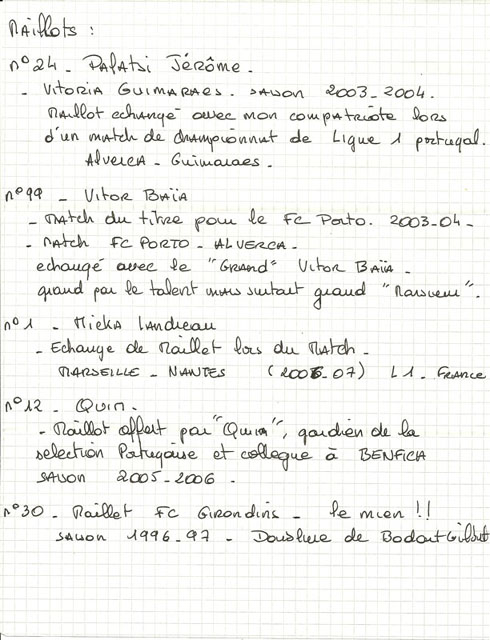 Maillots :
n°24 - Palatsi Jérôme.
- Vitoria Guimaraes. saison 2003-2004.
Maillot echangé avec mon compatriote lors
d'un match de championnat de Ligue 1 portugal.
Alverca - Guimaraes.
n°99 - Vitor Baïa
- Match du titre pour le FC Porto. 2003-04-
- Match FC PORTO - ALVERCA -
echangé avec le "GRAND" Vitor Baïa -
grand par le talent mais surtout grand "Monsieur".
n°1 - Micka Landreau
- Echange de Maillot lors du Match -
MARSEILLE - NANTES (2006-07) L1 - France
n°12 - Quim.
- Maillot offert par "Quim", gardien de la
selection Portugaise et collegue à BENFICA
saison 2005-2006 -
n°30 - Maillot FC Girondins - le mien !!
saison 1996-97 - Doublure de Bodart Gilbert